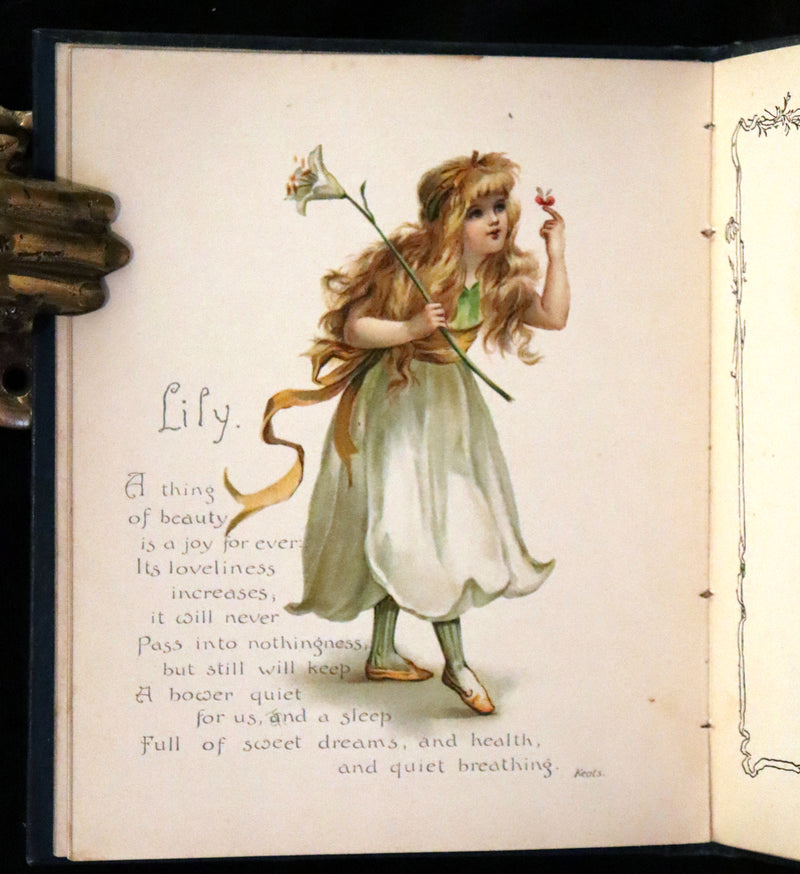 Lily.
A thing
of beauty
is a joy for ever:
Its loveliness
increases;
it will never
Pass into nothingness,
but still will keep
A bower quiet
for us, and a sleep
Full of sweet dreams, and health,
and quiet breathing.
Keats.